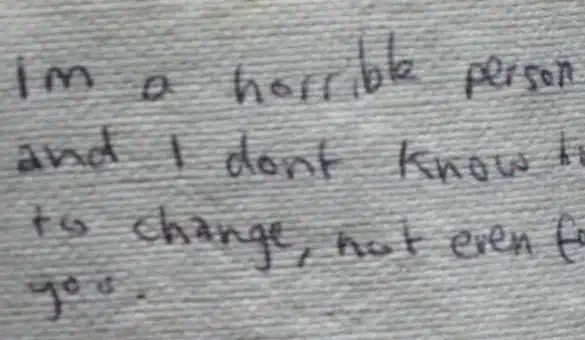 im a horrible person
and I dont know h
to change, not even fo
you.